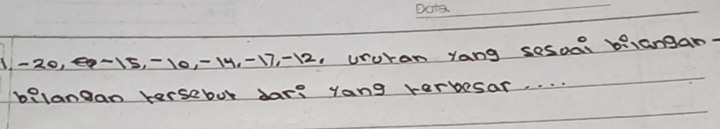 Data
1 -20, -15, -10, -14, -17, -12, Urutan yang sesuai bilangan-
bilangan tersebut dari yang terbesar....